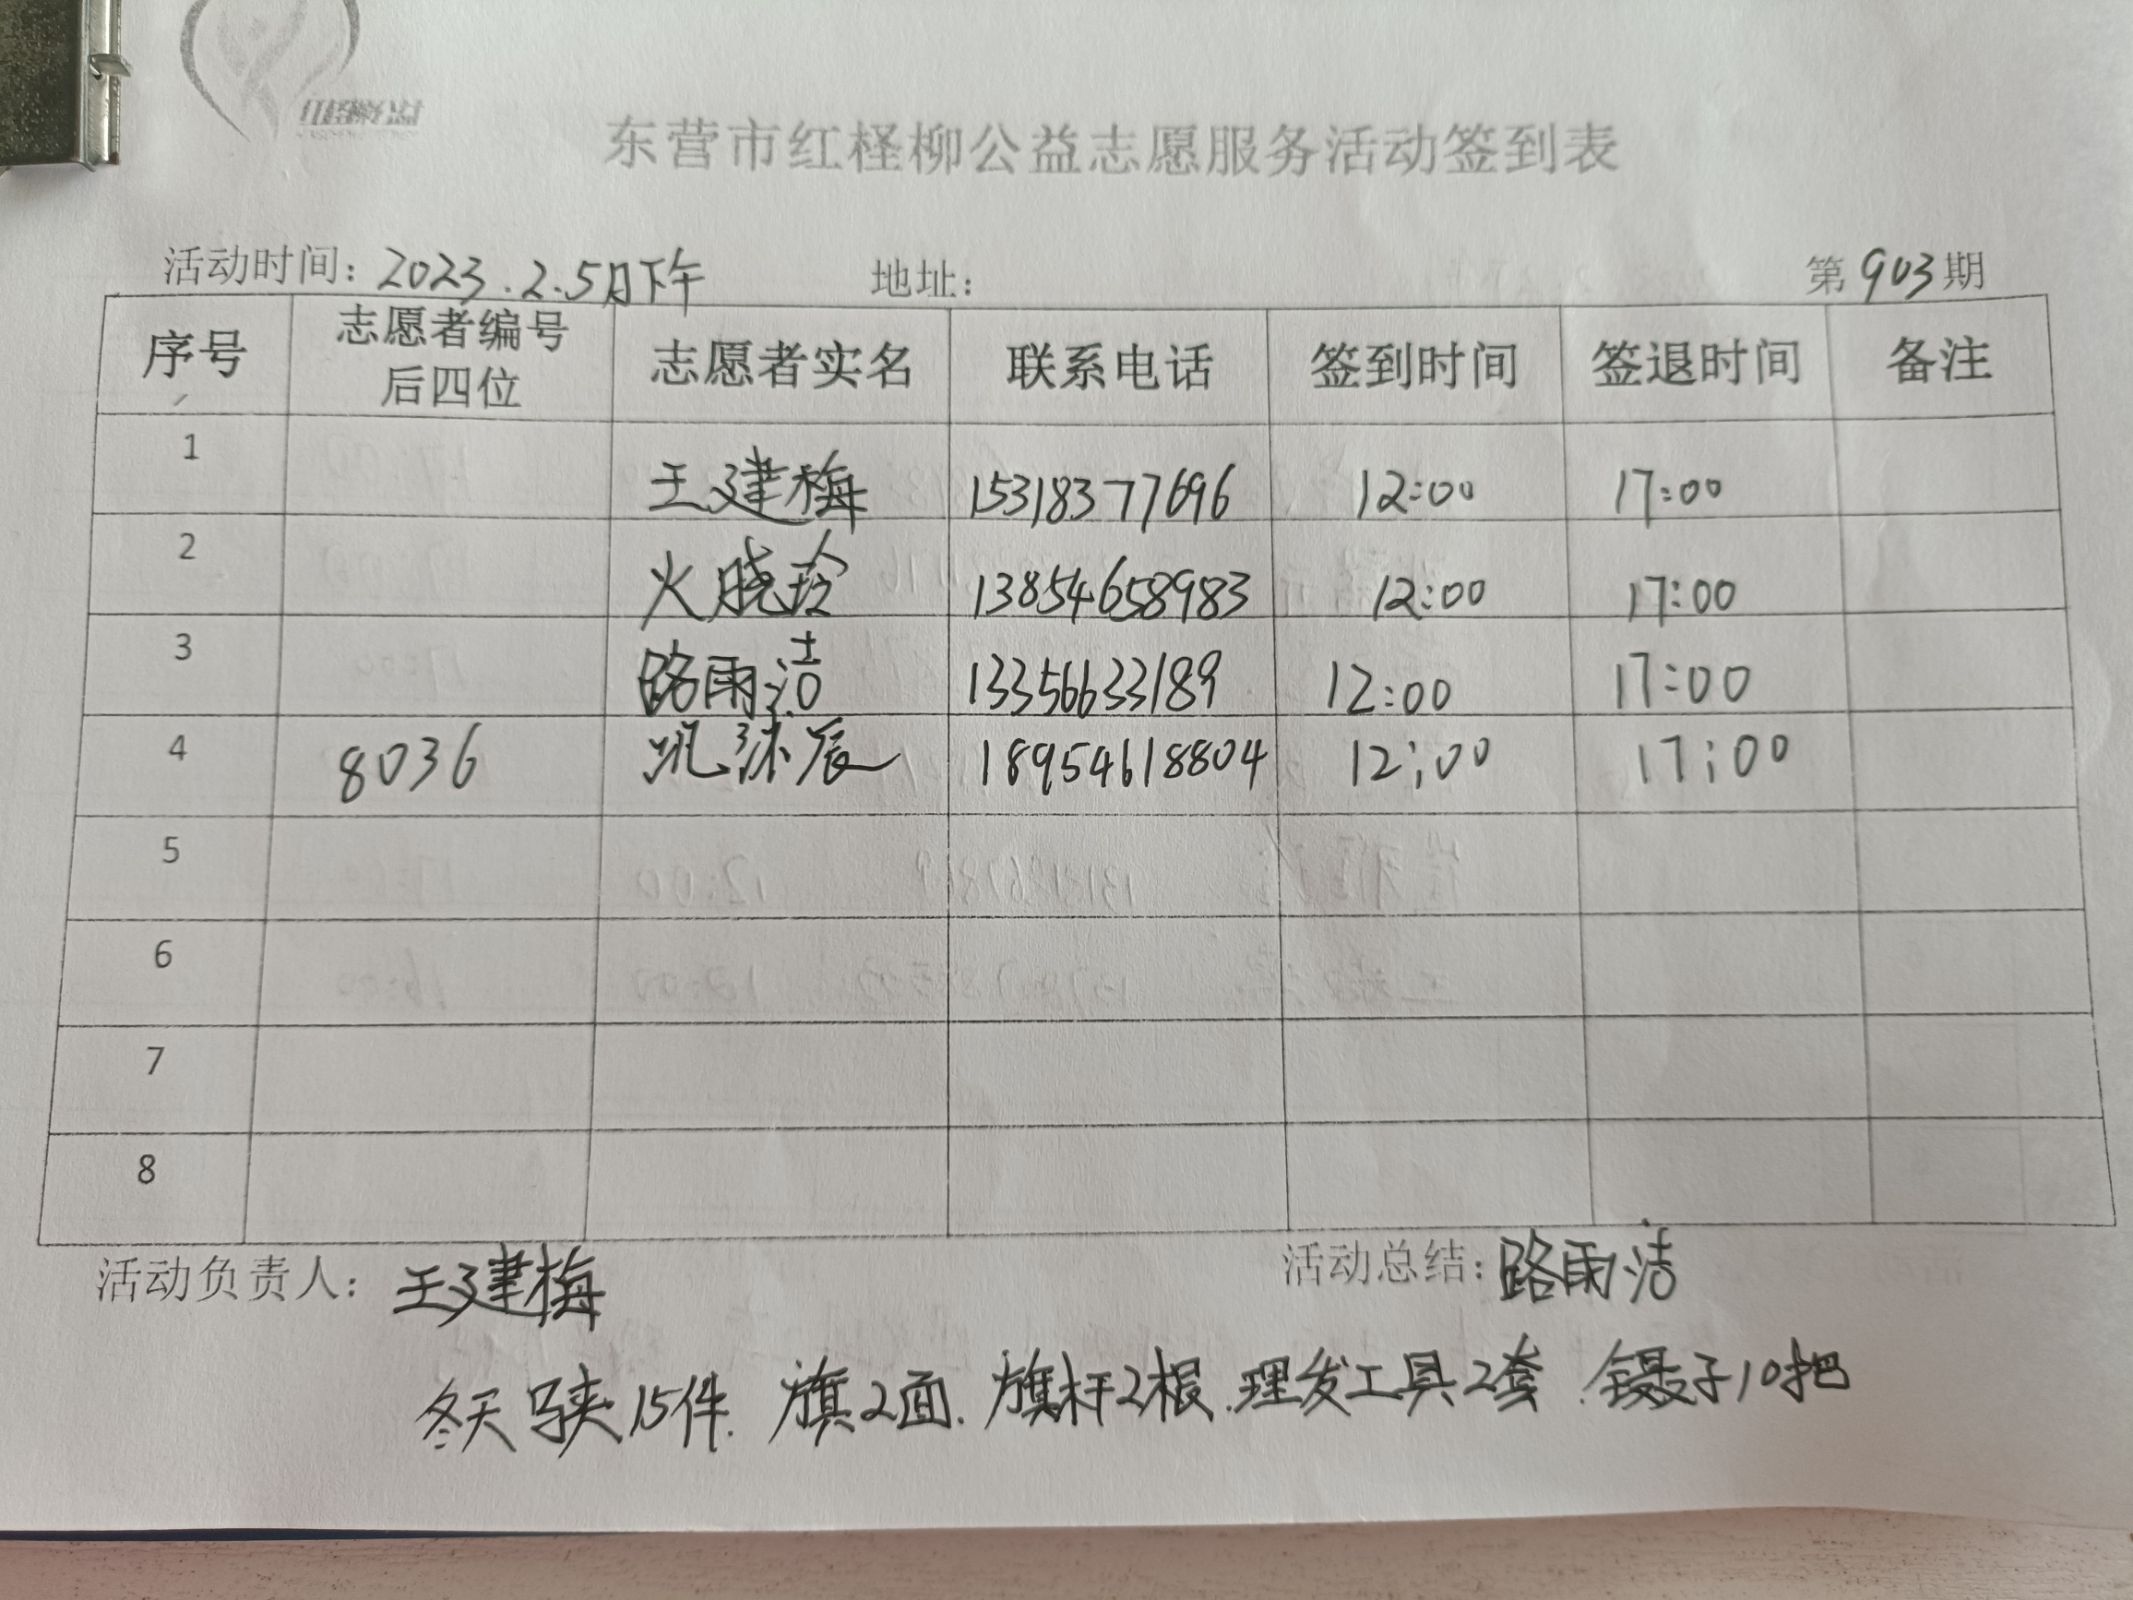 红柽柳公益
东营市红柽柳公益志愿服务活动签到表
活动时间：2023.2.5日下午 地址： 第903期
序号 志愿者编号后四位 志愿者实名 联系电话 签到时间 签退时间 备注
1 王建梅 15318377696 12:00 17:00
2 火晓玲 13854658983 12:00 17:00
3 路雨洁 13356633189 12:00 17:00
4 8036 辰 18954618804 12:00 17:00
5
6
7
8
活动负责人：王建梅 活动总结：路雨洁
冬天 15件. 旗2面. 旗杆2根. 理发工具2套. 镊子10把